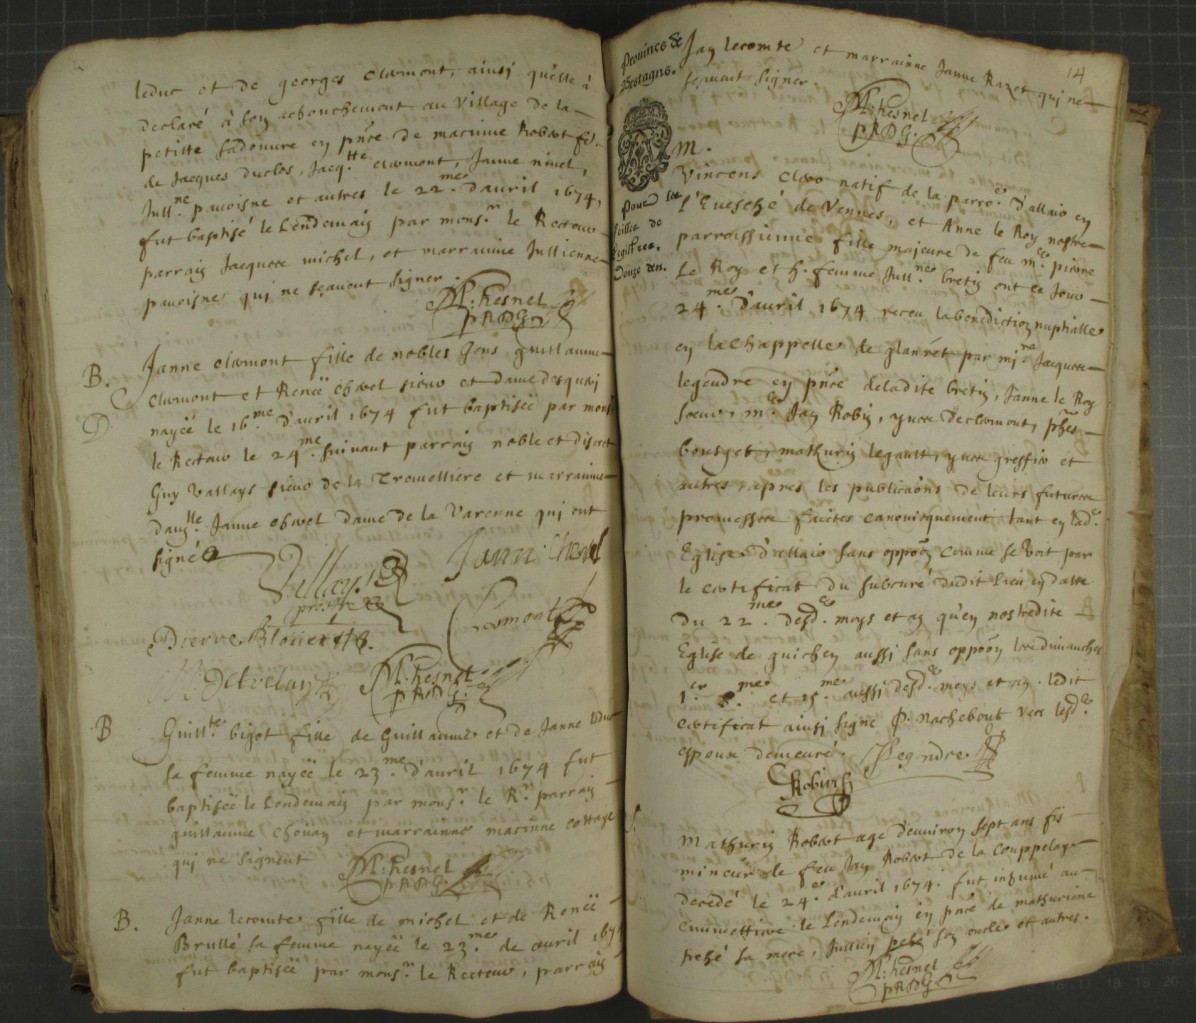 leduc et de georges clermont, ainsi quelle à
declaré à son acbouchement au village de la
petitte Ladouure en pnce de macime Robert fe
de Jacques ducles, Jacqtte clermont, Janne niuel,
Jullne pauoisne et autres le 22me d'auril 1674,
fut baptisé le Lendemain par monsr le Recteur
parrain Jacques michel, et marraine Jullienne
pauoisne qui ne scauent signer.
M: hesnel
pRDG.
B. Janne clermont fille de nobles gens guillaume
D clermont et Renée chevel sieur et dame desquai
nayée le 16me d'auril 1674 fut baptisée par mons
le Recteur le 24me suiuant parrain noble et discret
Guy Vallays sieur de la Tremelliere et marraine
dauslle Janne chevel dame de la Varenne qui ont
signé
Vallays
Janne: Chevel
Pierre Blouet
Clermont
M: hesnel
pRDG.
B Guillte bigot fille de Guillaume et de Janne leduc
sa femme nayée le 23me d'auril 1674 fut
baptisée le Lendemain par monsr le Rr parrain
guillaume chouan et marraine macime cottage
qui ne signent
M: hesnel
pRDG.
B. Janne lecomte fille de michel et de Renée
Brullé sa femme nayée le 23me de auril 1674
fut baptisée par monsr le Recteur, parrain
Prouince de
Bretagne.
Pour le
feillet de
Registres.
Douze den.
14
Jan lecomte et marrainne Janne Razet qui ne
scauent signer
M: hesnel
pRDG.
M.
Vincens Cloro natif de la parroe d'allaio en
l'Euesché de Vennes, et Anne le Roy nostre
parroissienne fille majeure de feu me pierre
Le Roy et h. femme Jullne bretin ont ce Jour
24me d'auril 1674 receu la benediction nuptialle
en la chappelle de glanret par mire Jacques
legendre en pnce de ladite bretin, Janne le Roy
soeur, me Jan Robin, yues declermont, phes
bourget, mathurin legault, yues greffin et
autres, apres les publicaôns de leurs futures
promesses faictes canonicquement tant en lade
Eglise d'allaio sans oppôôn comme se voit par
le certificat du subcuré dudit lieu en datte
du 22me desde moys et an qu'en nostredite
Eglise de guichen aussi sans oppôôn les dimanches
1er, 8me et 15me aussi desde moys et an. Ledit
certificat ainsi signé P. Nachebout vers lesde
espoux demeuré.
Legendre
Robin
S. Mathurin Robert agé d'enuiron sept ans fis
mineur de feu Jan Robert de la Couppelaye
decedé le 24e d'auril 1674. fut inhumé au
Cimmettiere le Lendemain en pnce de mathurinne
pehé sa mere, Jullien pehé son oncle et autres.
M: hesnel
pRDG